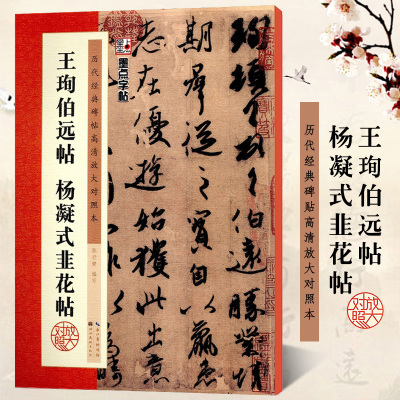 历代经典碑帖高清放大对照本
王珣伯远帖 杨凝式韭花帖
放大对照
墨点字帖
珣頓首頓首伯遠勝業情
期群從之寶自以羸
志在優遊始獲此出意
王珣伯远帖
杨凝式韭花帖
放大对照
历代经典碑贴高清放大对照本
遠